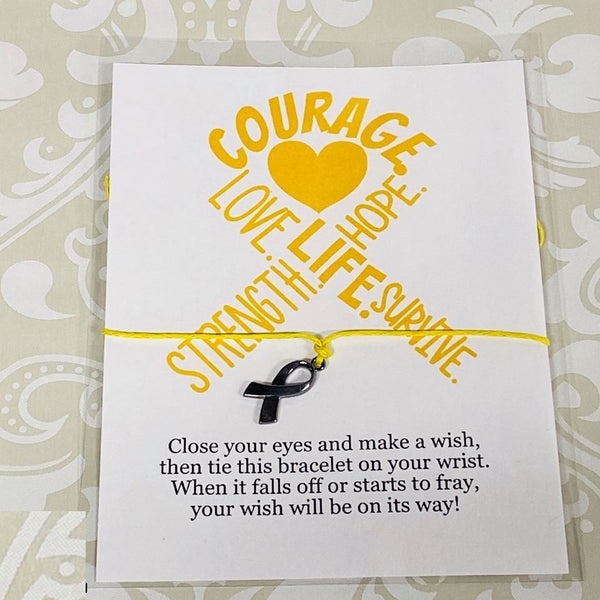 COURAGE.
LOVE. HOPE.
LIFE.
STRENGTH. SURVIVE.
Close your eyes and make a wish,
then tie this bracelet on your wrist.
When it falls off or starts to fray,
your wish will be on its way!